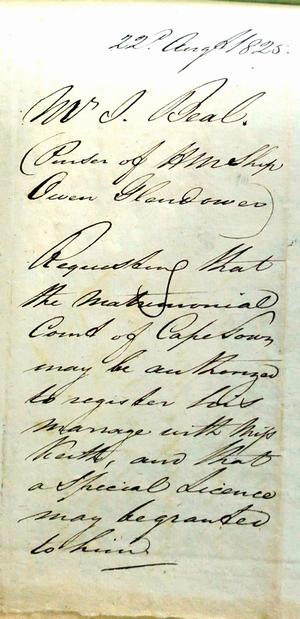 22d Augst 1825.
Mr J. Beal.
(Purser of HM Ship
Owen Glendower)
Requesting that
the Matrimonial
Court of Cape Town
may be authorized
to register his
marriage with Miss
Keith, and that
a Special Licence
may be granted
to him.